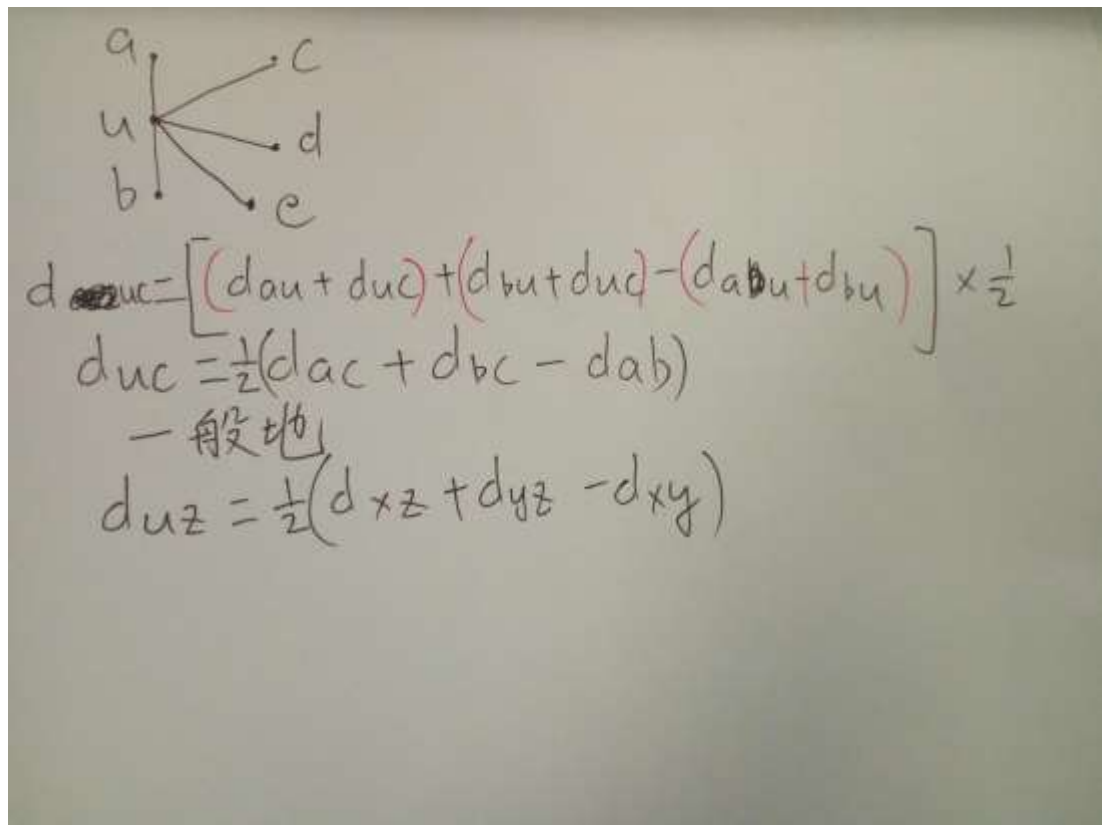 a
c
u
d
b
e
duc=[(dau+duc)+(dbu+duc)-(dabu+dbu)]×1/2
duc=1/2(dac+dbc-dab)
一般地
duz=1/2(dxz+dyz-dxy)